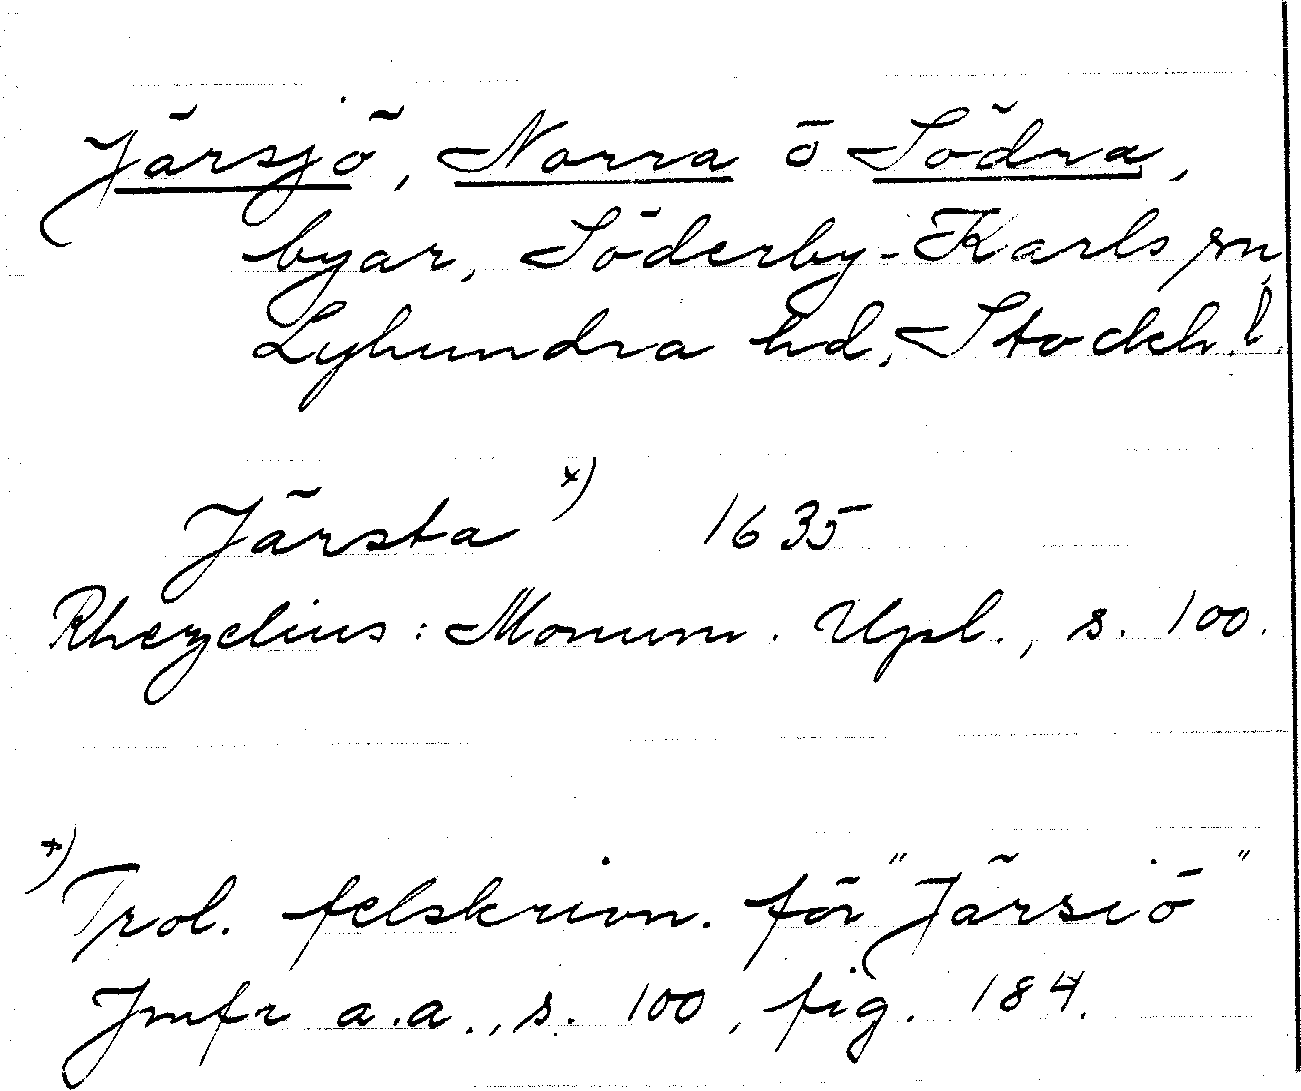 Järsjö, Norra o Södra,
byar, Söderby-Karls sn,
Lyhundra hd, Stockh. l.
Järsta x) 1635
Rhezelius: Monum. Upl., s. 100.
x) Trol. felskrivn. för "Järsiö"
Jmfr a.a., s. 100, fig. 184.